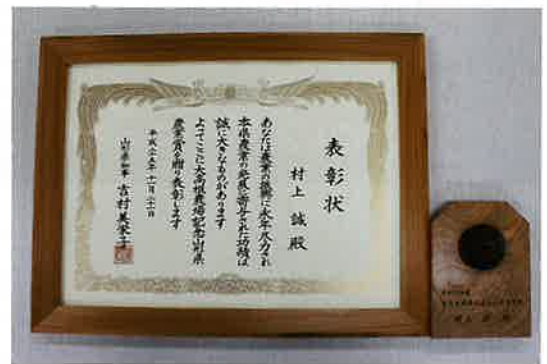 表彰状
村上誠殿
あなたは農業の振興に永年尽力され
本県農業の発展に寄与された功績は
誠に大きなものがあります
よってここに大高根農場記念山形県
農業賞を贈り表彰します
平成二十五年十一月二十一日
山形県知事 吉村美栄子